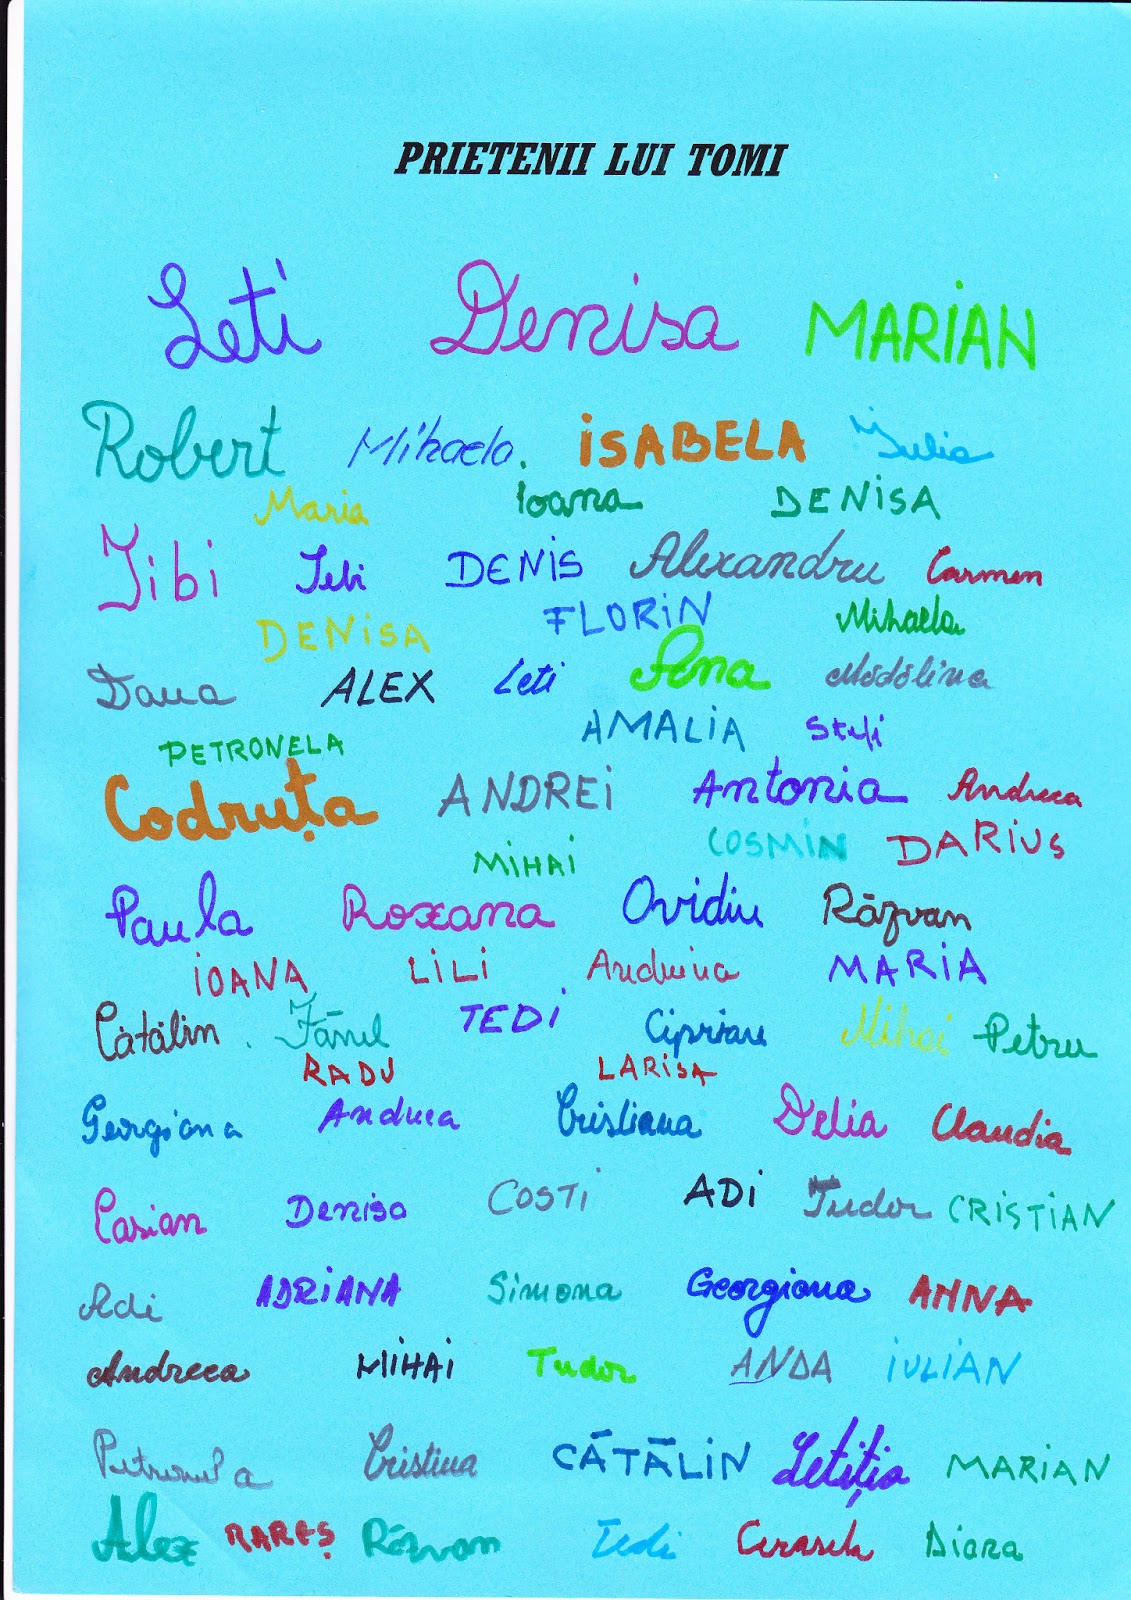 PRIETENII LUI TOMI
Leti Denisa MARIAN
Robert Mihaela. ISABELA Iulia
Maria Ioana DENISA
Tibi DENIS Alexandru Carmen
DENISA FLORIN Mihaela
Dana ALEX Leti Ana Mădălina
PETRONELA AMALIA Stefi
Codruța ANDREI Antonia Andreea
MIHAI COSMIN DARIUS
Paula Roxana Ovidiu Răzvan
IOANA LILI Andreina MARIA
Cătălin Fănel TEDI Ciprian Mihai Petru
RADU LARISA
Georgiana Andreea Cristiana Delia Claudia
Casian Denisa COSTI ADI Tudor CRISTIAN
Adi ADRIANA Simona Georgiana ANNA
Andreea MIHAI Tudor ANDA IULIAN
Petronela Cristina CĂTĂLIN Letiția MARIAN
Alex RAREȘ Răzvan Tedi Cerasela Diara